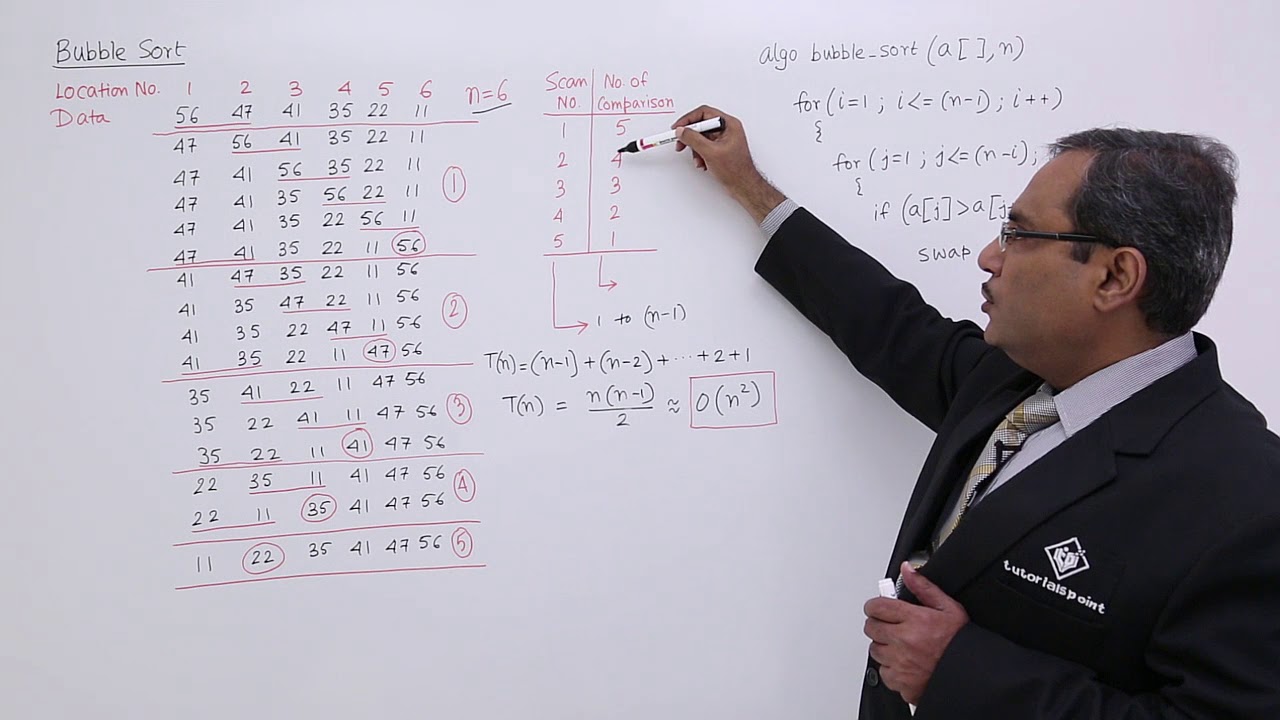 Bubble Sort
Location No. 1 2 3 4 5 6 n=6
Data 56 47 41 35 22 11
47 56 41 35 22 11
47 41 56 35 22 11
47 41 35 56 22 11
47 41 35 22 56 11
47 41 35 22 11 56
1
41 47 35 22 11 56
41 35 47 22 11 56
41 35 22 47 11 56
41 35 22 11 47 56
2
35 41 22 11 47 56
35 22 41 11 47 56
35 22 11 41 47 56
3
22 35 11 41 47 56
22 11 35 41 47 56
4
11 22 35 41 47 56 5
Scan No. of
No. Comparison
1 5
2 4
3 3
4 2
5 1
1 to (n-1)
T(n)=(n-1)+(n-2)+⋯+2+1
T(n) = n(n-1)/2 ≈ O(n²)
algo bubble_sort (a[ ], n)
for (i=1 ; i<=(n-1) ; i++)
{
for (j=1 ; j<=(n-i) ;
{
if (a[j]>a[j
swap
tutorialspoint